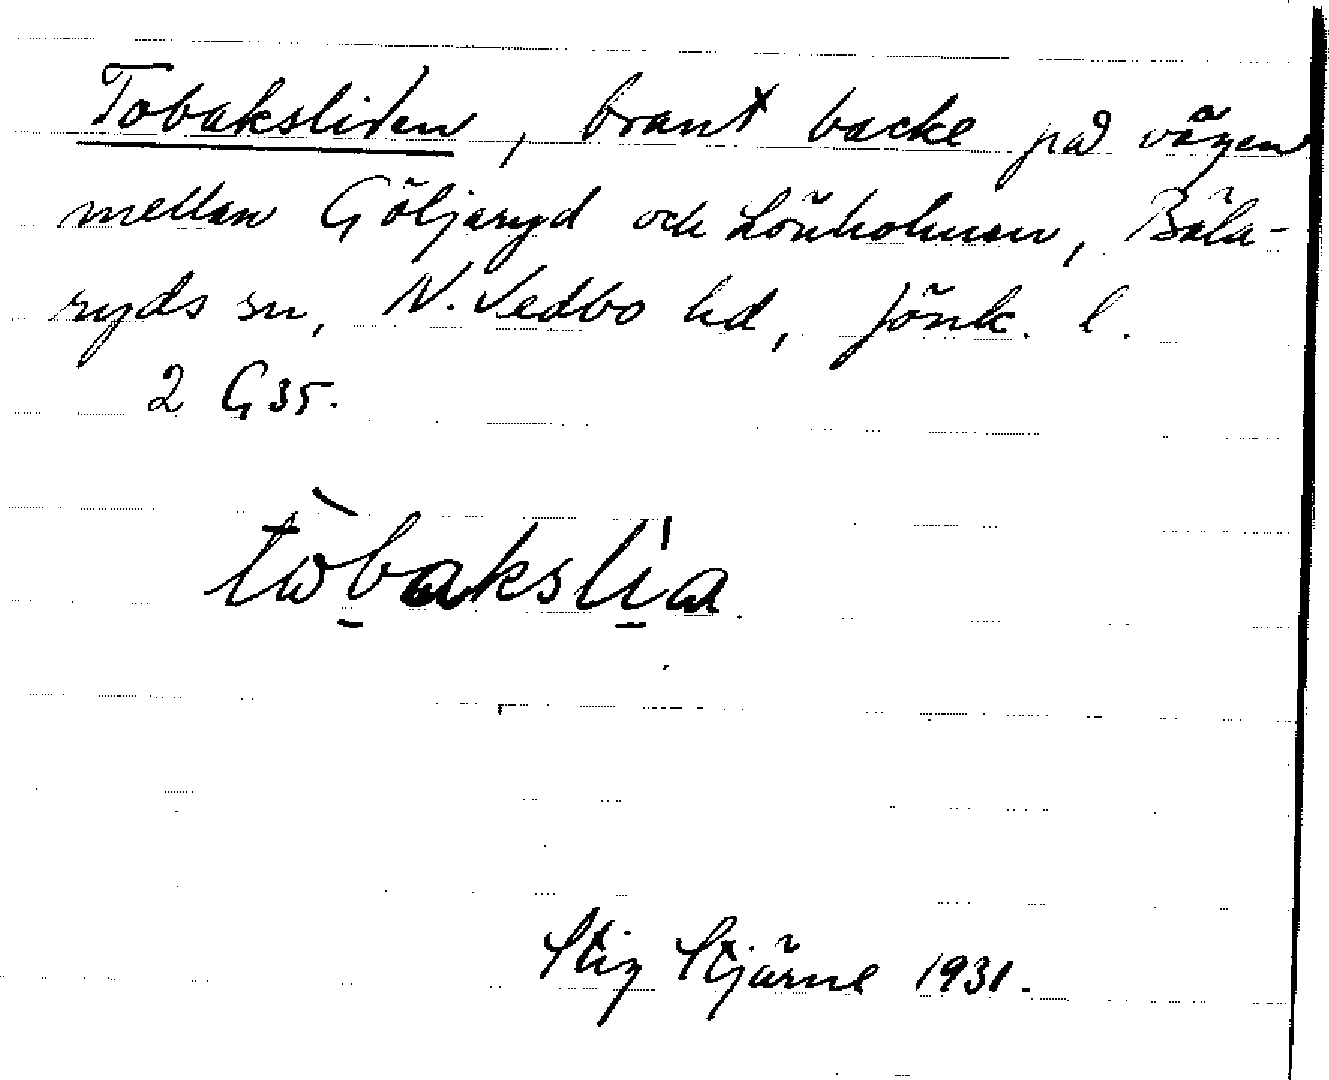 Tobaksliden, brant backe på vägen
mellan Göljaryd och Lönholmen, Bäla-
ryds sn, N. Vedbo hd, Jönk. l.
2 G 35.
tòbaksli̍a.
Stig Stjärne 1931.